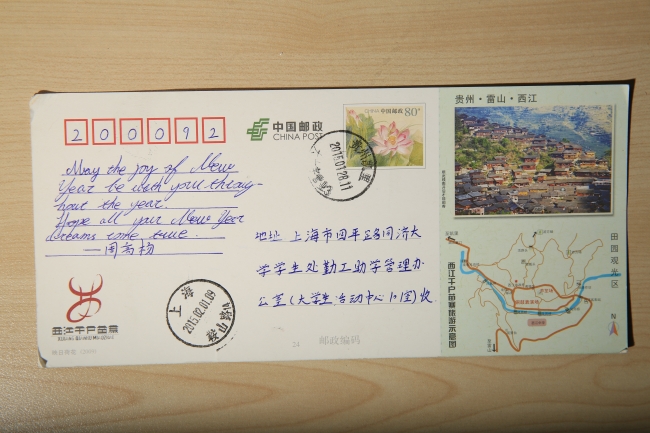 200092
中国邮政
CHINA POST
80分
贵州·雷山·西江
May the joy of New
Year be with you throug-
hout the year.
Hope all your New Year
dreams come true.
地址 上海市四平路同济大
学学生处勤工助学管理办
公室(大学生活动中心 收
2015.01.28.11
上海
2015.02.01.09
鞍山路
西江千户苗寨
邮政编码
田园观光区
西江千户苗寨旅游示意图
N